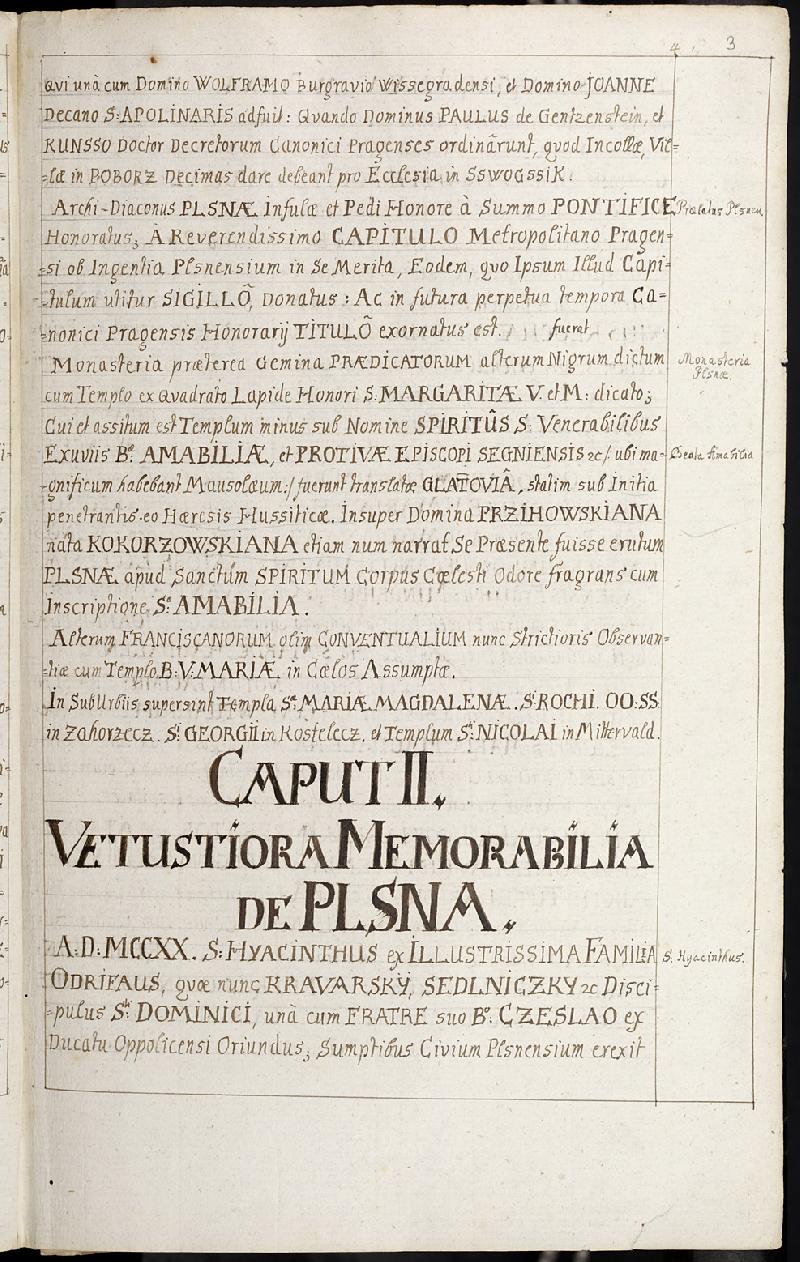 4. 3
Qvi unà cum Domino WOLFRAMO Burgravio Wissegradensi, et Domino JOANNE
Decano S: APOLINARIS adfuit: Qvando Dominus PAULUS de Gentzenstein, et
KUNSSO Doctor Decretorum Canonici Pragenses ordinârunt, qvod Incollæ, Vil=
=læ in BOBORZ Decimas dare debeant pro Ecclesia in SSWOGSSIK.
Archi-Diaconus PLSNÆ Infulæ et Pedi Honore à Summo PONTIFICE
Prælatus Plsnen,
Honoratus; A Reverendissimo CAPITULO Metropolitano Pragen=
=si ob Ingentia Plsnensium in Se Merita, Eodem, qvo Ipsum Illud Capi=
=tulum utitur SIGILLÔ, Donatus: Ac in futura perpetua tempora Ca=
nonici Pragensis Honorarij TITULÔ exornatus est. fuerat
Monasteria præterea Gemina PRÆDICATORUM alterum Nigrum dictum
Monasteria
Plsnæ.
cum Templo ex Qvadrato Lapide Honori S: MARGARITÆ V. et M: dicato;
Cui et assitum est Templum minus sub Nomine SPIRITÛS S: Venerabilibus
Exuviis Bæ AMABILIÆ, et PROTIVÆ EPISCOPI SEGNIENSIS &c/: ubi ma=
Beata Amabilia
=gnificum habebant Mausolæum:/ fuerunt translatæ GLATOVIÂ, statim sub Initia
penetrantis eo Hæresis Hussiticæ. Insuper Domina PRZIHOWSKIANA
nata KOKORZOWSKIANA etiam num narrat, Se Præsente fuisse erutum
PLSNÆ apud Sanctum SPIRITUM Corpus Cœlesti Odore fragrans cum
Inscriptione, Sa AMABILIA.
Alterum FRANCISCANORUM olim CONVENTUALIUM nunc Strictioris Observan=
=tiæ cum Templo B: V: MARIÆ in Cœlos Assumptæ.
In SubUrbiis supersunt Templa Sæ MARIÆ MAGDALENÆ. S: ROCHI. OO: SS.
in Zahorzecz. S: GEORGII in Kostelecz. et Templum S: NICOLAI in Mittervald.
CAPUT II.
VETUSTIORA MEMORABILIA
DE PLSNA.
A: D: MCCXX. S: HYACINTHUS ex ILLUSTRISSIMA FAMILIA
S. Hyacinthus.
ODRIFAUS, qvæ nunc KRAVARSKY, SEDLNICZKY &c Disci=
=pulus Sti DOMINICI, unà cum FRATRE suo B: CZESLAO ex
Ducatu Oppolicensi Oriundus; Sumptibus Civium Plsnensium erexit